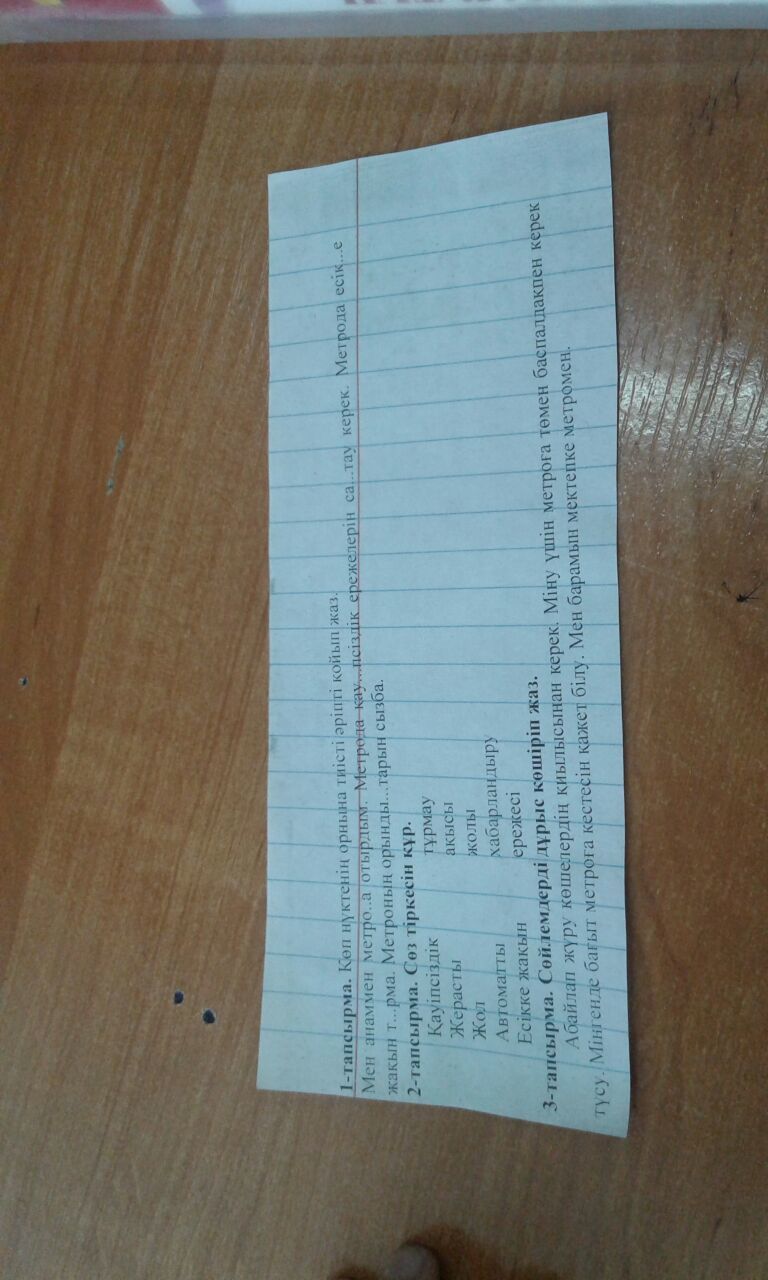 1-тапсырма. Көп нүктенің орнына тиісті әріпті қойып жаз.
Мен анаммен метро..а отырдым. Метрода қау...псіздік ережелерін са...тау керек. Метрода есік...е
жақын т...рма. Метроның орынды...тарын сызба.
2-тапсырма. Сөз тіркесін құр.
Қауіпсіздік тұрмау
Жерасты ақысы
Жол жолы
Автоматты хабарландыру
Есікке жақын ережесі
3-тапсырма. Сөйлемдерді дұрыс көшіріп жаз.
Абайлап жүру көшелердің қиылысынан керек. Міну үшін метроға төмен баспалдақпен керек
түсу. Мінгенде бағыт метроға кестесін қажет білу. Мен барамын мектепке метромен.